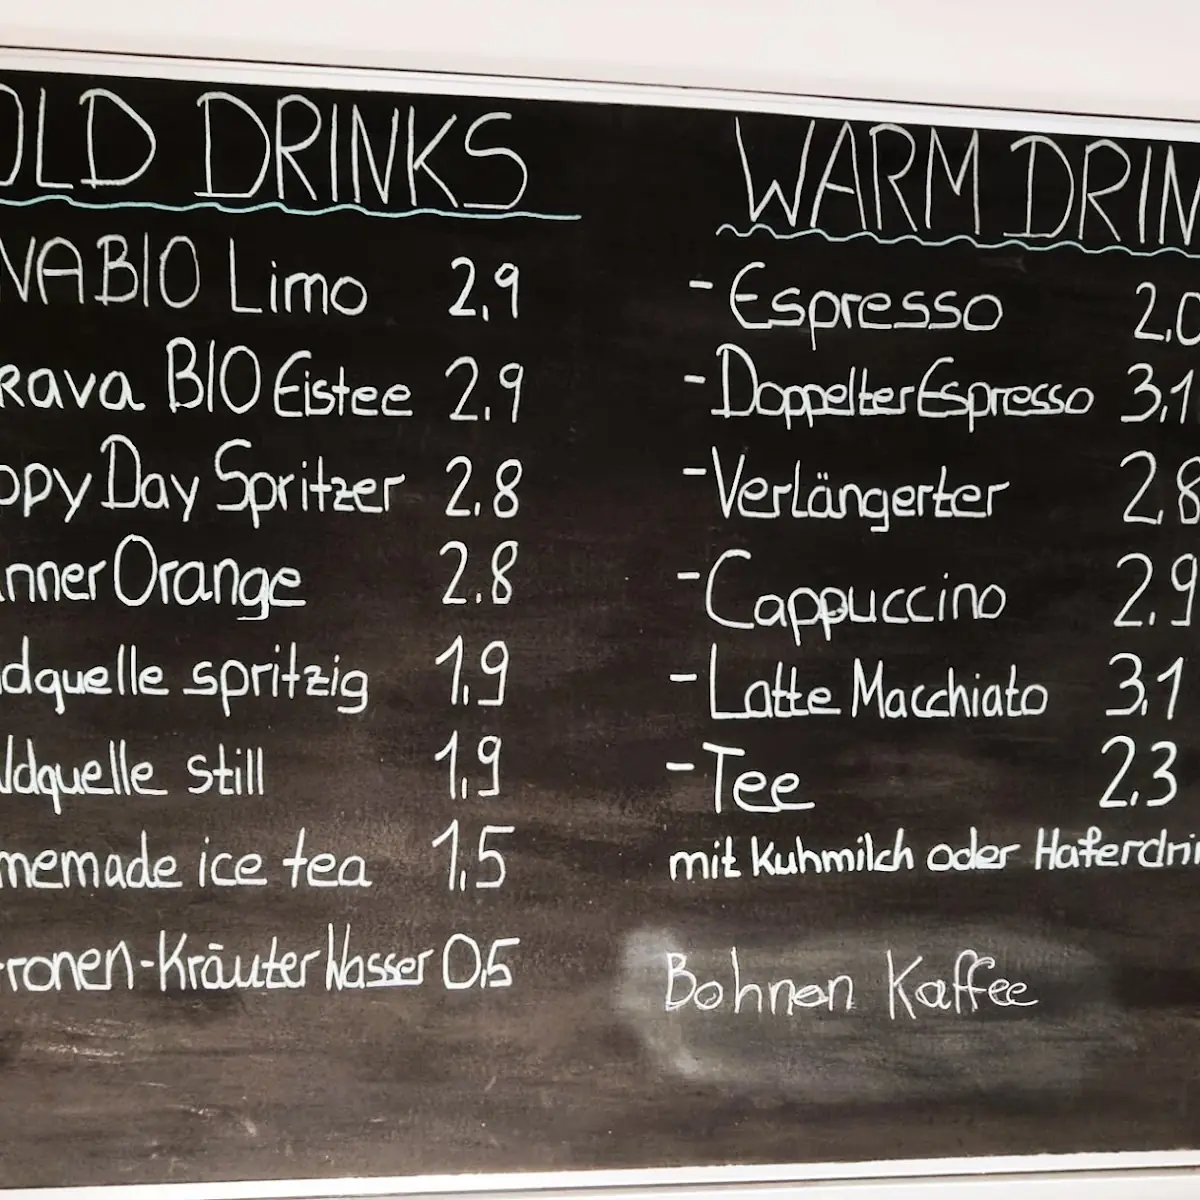 OLD DRINKS
VABIO Limo 2,9
rava BIO Eistee 2,9
ppy Day Spritzer 2,8
nner Orange 2.8
dquelle spritzig 1,9
ldquelle still 1,9
memade ice tea 1,5
ronen-Kräuter Wasser 0,5
WARM DRIN
- Espresso 2,0
- Doppelter Espresso 3,1
- Verlängerter 2,8
- Cappuccino 2,9
- Latte Macchiato 3,1
- Tee 2,3
mit Kuhmilch oder Haferdri
Bohnen Kaffee